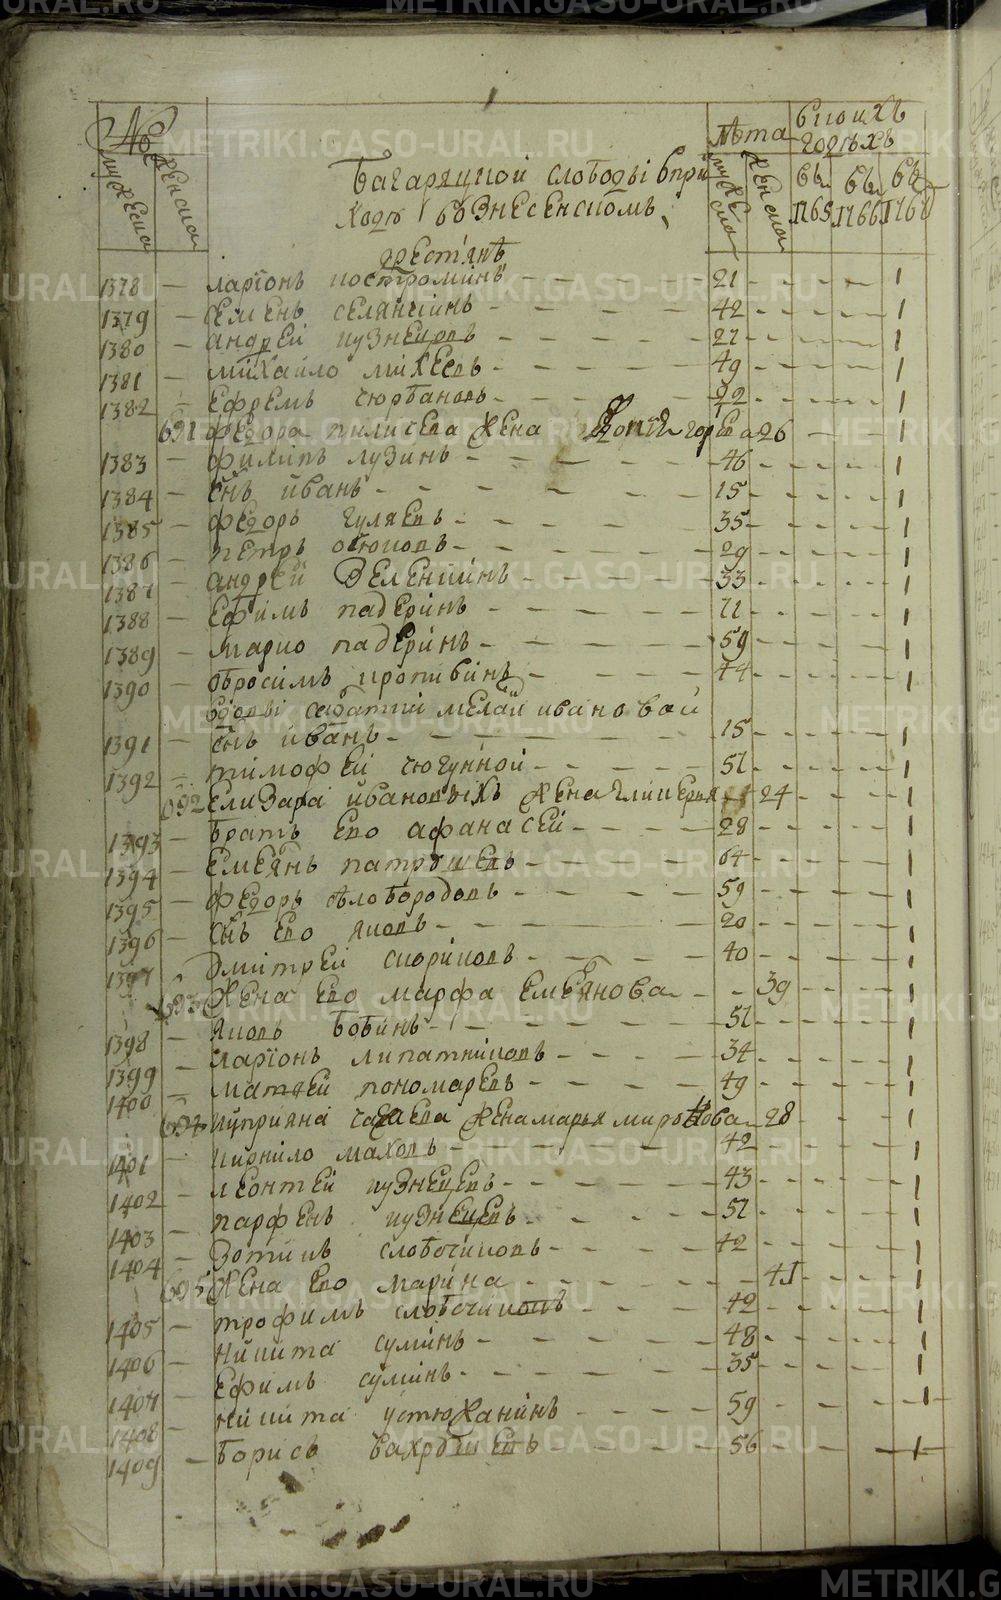 METRIKI.GASO-URAL.RU
№е
мужеска женска
лѣта
мужеска женска
в коихъ годѣхъ
въ 1765 въ 1766 въ 1768
Багаряцкой слободы в при
ходѣ вознесенскомъ
крестьянѣ
1378 — ларіонъ костроминъ 21 1
1379 — семенъ селянкинъ 42 1
1380 — андрей кузнецовъ 27 1
1381 — михайло михеевъ 49 1
1382 — ефремъ чюрбановъ 22 1
691 федора пилисева жена 26 1
1383 — филипъ лузинъ 46 1
1384 — снъ иванъ 15 1
1385 — федоръ гуляевъ 35 1
1386 — петръ осюковъ 29 1
1387 — андрей зеленкинъ 33 1
1388 — ефимъ падеринъ 21 1
1389 — марко падеринъ 59 1
1390 — абросимъ кропивинъ 44 1
вдовы ивановой
1391 — снъ иванъ 15 1
1392 — тимофей чюгунной 51 1
692 елизара ивановыхъ жена гликерья 24 1
1393 — братъ ево афанасей 28 1
1394 — емеянъ патрушевъ 64 1
1395 — федоръ белобородовъ 59 1
1396 — снъ ево яковъ 20 1
1397 — дмитрей скориковъ 40 1
693 жена ево марфа емеянова 39 1
1398 — яковъ бабинъ 51 1
1399 — ларіонъ липатниковъ 34 1
1400 — матвей пономаревъ 49 1
694 куприяна жена марья миронова 28 1
1401 — кирило маховъ 42 1
1402 — леонтей кузнецевъ 43 1
1403 — парфенъ кузнецевъ 51 1
1404 — зотикъ слобочиковъ 42 1
695 жена ево марина 41 1
1405 — трофимъ слобочиковъ 42 1
1406 — никита суминъ 48 1
1407 — ефимъ суминъ 35 1
1408 — никита устюжанинъ 59 1
1409 — борисъ вахрушевъ 56 1